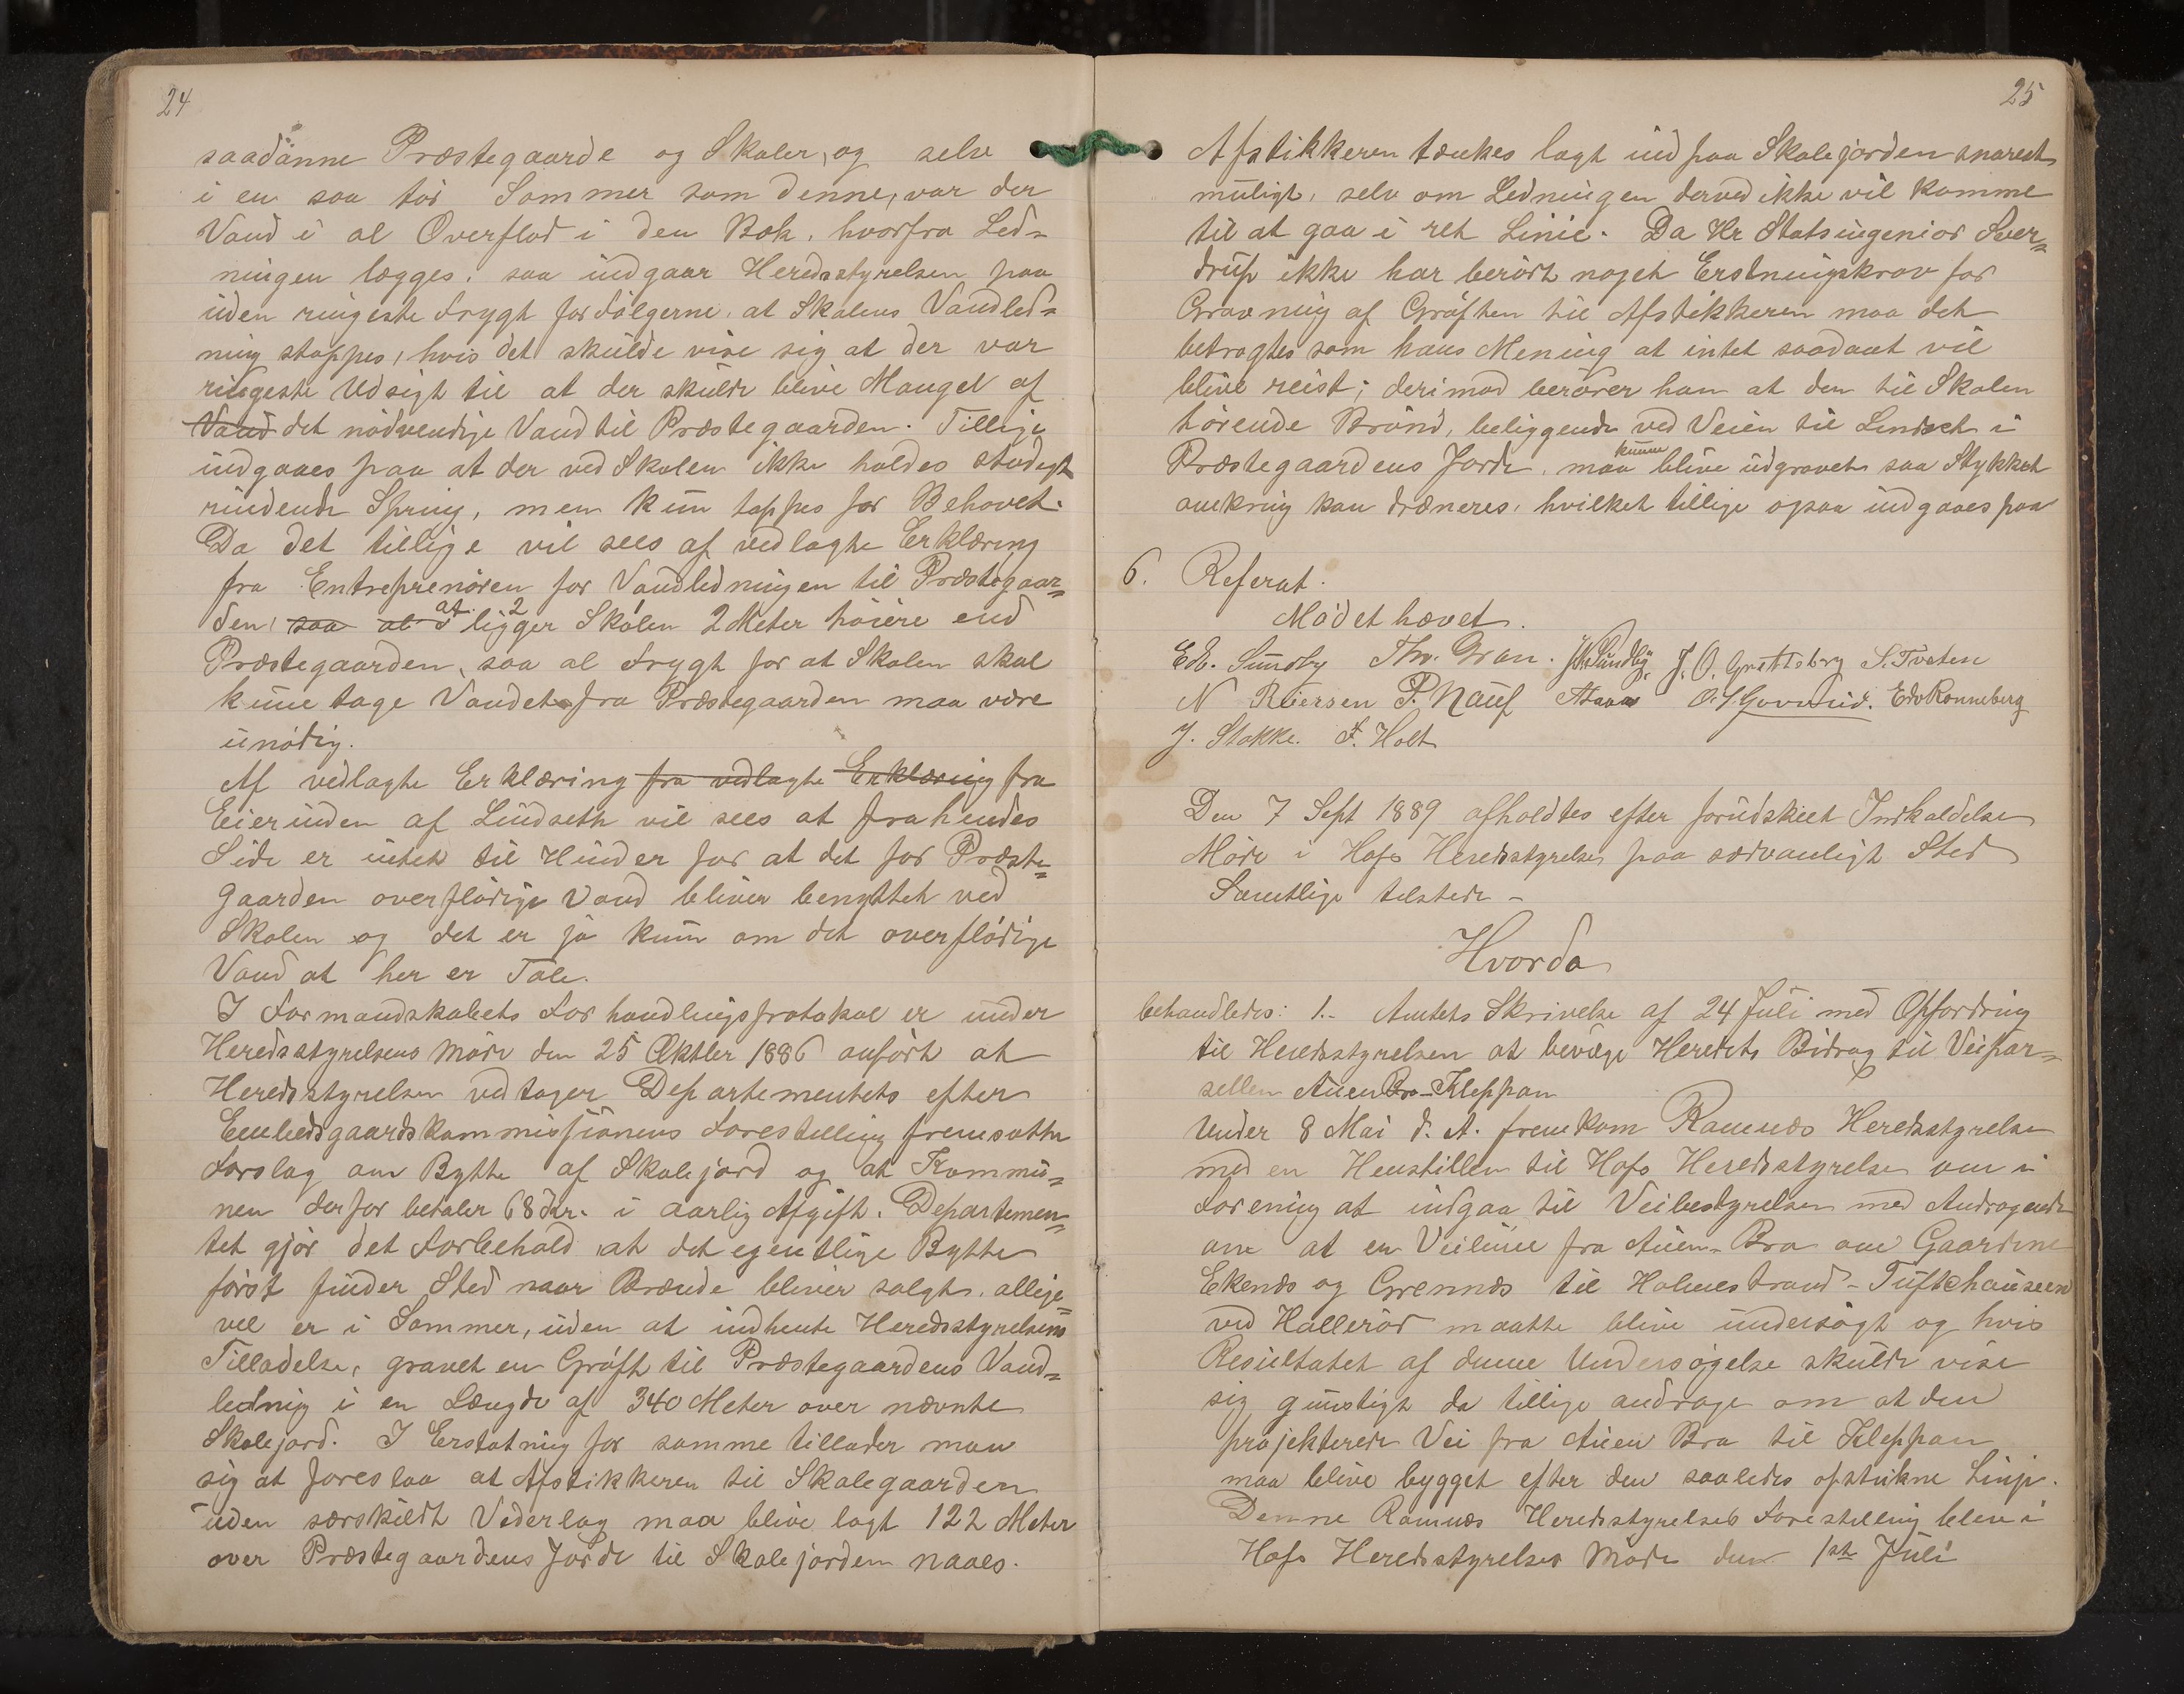 24
saadanne Præstegaarde og Skoler, og selv
i en saa tør Sommer som denne, var der
Vand i al Overflod i den Bæk, hvorfra Led=
ningen lægges, saa indgaar Heredsstyrelsen paa
uden ringeste Frygt for Følgerne, at Skolens Vandled=
ning stoppes, hvis det skulde vise sig at der var
ringeste Udsigt til at der skulde blive Mangel af
Vand det nødvendige Vand til Præstegaarden. Tillige
indgaaes paa at der ved Skolen ikke holdes stadigt
rindende Spring, men kun tappes for Behovet.
Da det tillige vil sees af vedlagte Erklæring
fra Entreprenøren for Vandledningen til Præstegaar=
den, saa al at ligger Skolen 2 Meter høiere end
Præstegaarden, saa al Frygt for at Skolen skal
kune tage Vandet fra Præstegaarden maa være
unødig.
Af vedlagte Erklæring fra vedlagte Erklæring fra
Eierinden af Lindseth vil sees at fra hendes
Side er intet til Hinder for at det for Præste=
gaarden overflødige Vand bliver benyttet ved
Skolen og det er jo kun om det overflødige
Vand at her er Tale.
I Formandskabets Forhandlingsprotokol er under
Heredsstyrelsens Møde den 25 Oktber 1886 anført at
Heredsstyrelsen vedtager Departementets efter
Embedsgaardskommissjonens Forestilling fremsatte
Forslag om Bytte af Skolejord og at Kommu=
nen derfor betaler 68 Kr. i aarlig Afgift. Departemen=
tet gjør det Forbehold at det egentlige Bytte
først finder Sted naar Brænde bliver solgt, allige=
vel er i Sommer, uden at indhente Heredsstyrelsens
Tilladelse, gravet en Grøft til Præstegaardens Vand=
ledning i en Længde af 340 Meter over nævnte
Skolejord. I Erstatning for samme tillader man
sig at foreslaa at Afstikkeren til Skolegaarden
uden særskildt Vederlag maa blive lagt 122 Meter
over Præstegaardens Jorde til Skolejorden naaes.
25
Afstikkeren tænkes lagt ind paa Skolejorden snarest
muligt, selv om Ledningen derved ikke vil komme
til at gaa i ret Linie. Da Hr Statsingeniør Sver=
drup ikke har berørt noget Erstningskrav for
Gravning af Grøften til Afstikkeren maa det
betragtes som hans Mening at intet saadant vil
blive reist; derimod berører han at den til Skolen
hørende Brønd, beliggende ved Veien til Lindset i
Præstegaardens Jorde, maa kunne blive udgravet saa Stykket
omkring kan dræneres, hvilket tillige ogsaa indgaaes paa
6. Referat.
Mødet hævet.
Edv. Sundby Thv. Gran. J. O. Grettsberg S. Tveten
N Riiersen P. Nauf Edv Ronneberg
J. Stokke. F. Holt
Den 7 Sept 1889 afholdtes efter forudskiet Indkaldelse
Møde i Hofs Heredsstyrelse paa sædvanligt Sted
Samtlige tilstede -
Hvorda
behandledes: 1.- Amtets Skrivelse af 24 Juli med Opfordring
til Heredsstyrelsen at bevæge Heredets Bidrag til Veipar=
sellen Auen Bro - Kleppan
Under 8 Mai d. A. fremkom Ramnæs Heredsstyrelse
med en Henstillen til Hofs Heredsstyrelse om i
Forening at indgaa til Veibestyrelsen med Andragende
om at en Veilinie fra Auen-Bro om Gaardene
Ekenæs og Grennæs til Holmestrand - Tuftehauseen
ved Hallerød maatte blive undersøgt og hvis
Resultatet af denne Undersøgelse skulde vise
sig gunstigt da tillige andrage om at den
projekterede Vei fra Auen Bro til Kleppan
maa blive bygget efter den saaledes opstukne Linje.
Denne Ramnæs Heredsstyrelses Forestilling blev i
Hofs Heredsstyrelses Møde den 1ste Juli